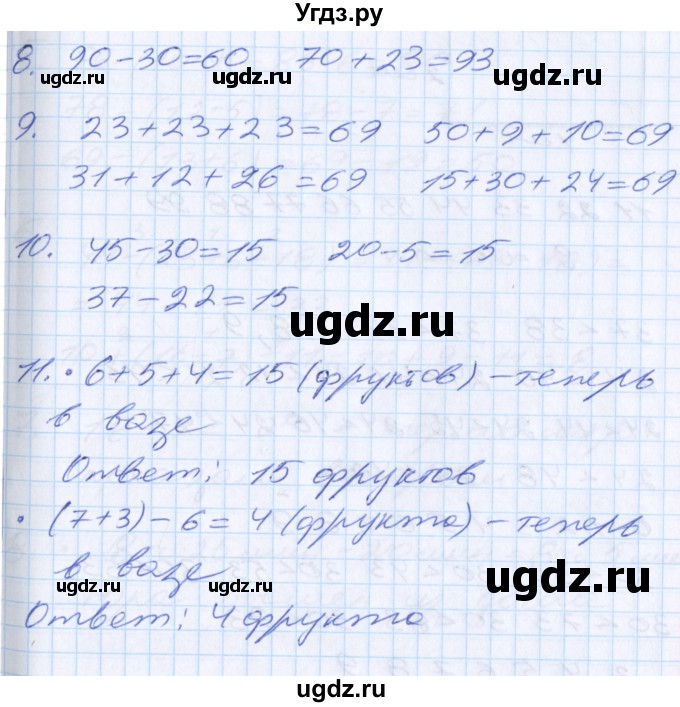 Угдз.ру
8. 90-30=60 70+23=93
ugdz.ru ugdz.ru
9. 23+23+23=69 50+9+10=69
31+12+26=69 15+30+24=69
ugdz.ru ugdz.ru
10. 45-30=15 20-5=15
37-22=15
ugdz.ru
11. • 6+5+4=15 (фруктов) - теперь
в вазе
ugdz.ru ugdz.ru
Ответ: 15 фруктов
• (7+3)-6=4 (фрукта) - теперь
в вазе
ugdz.ru ugdz.ru
Ответ: 4 фрукта
ugdz.ru
ugdz.ru